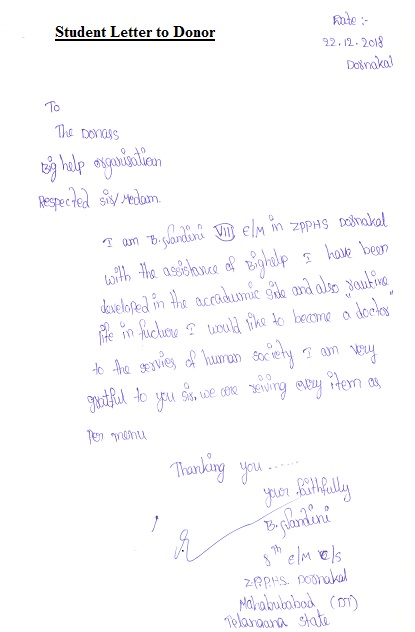 Student Letter to Donor
Date :-
22.12.2018
Dornakal
To
The Donars
Big help organisation
Respected sir/Medam.
I am B. Nandini VIII E/M in ZPPHS Dornakal
with the assistance of Bighelp I have been
developed in the accadumic side and also routine
life in fucture I would like to become a "doctor"
to the servies of human society I am very
gratful to you sir, we are reiving every item as
Per menu
Thanking you ......
your faithfully
B. Nandini
8th E/M
ZPPHS. Dornakal
Mahabubabad (DT)
Telangana State